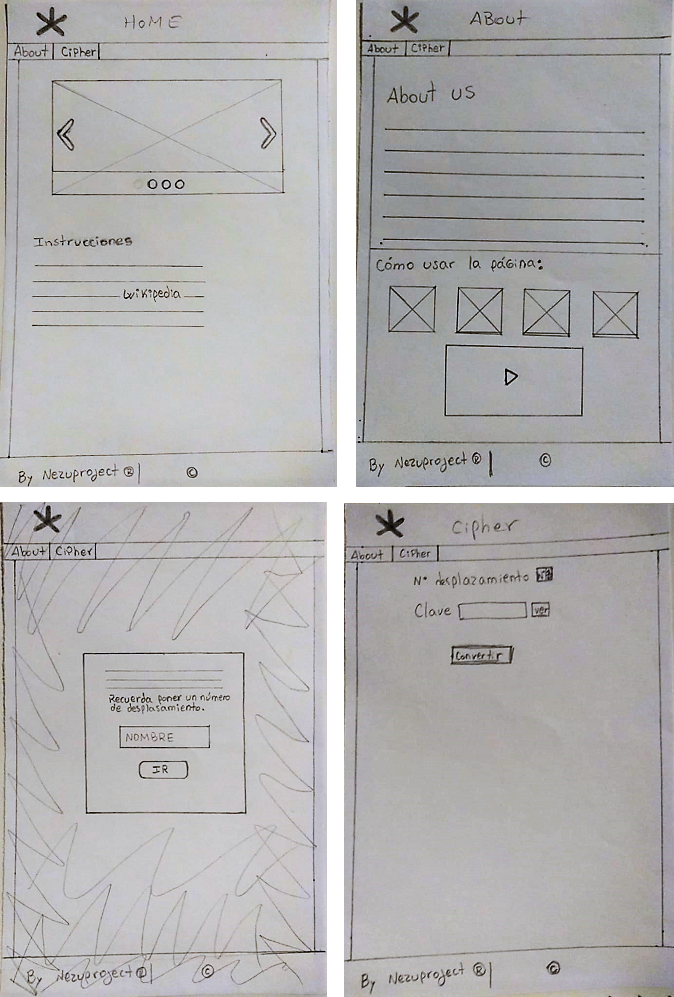 HOME
About Cipher
Instrucciones
Wikipedia
By Nezuproject ® ©
ABout
About Cipher
About us
Cómo usar la página:
By Nezuproject ® ©
About Cipher
Recuerda poner un número
de desplasamiento.
NOMBRE
IR
By Nezuproject ® ©
Cipher
About Cipher
N° desplazamiento
Clave ver
Convertir
By Nezuproject ® ©